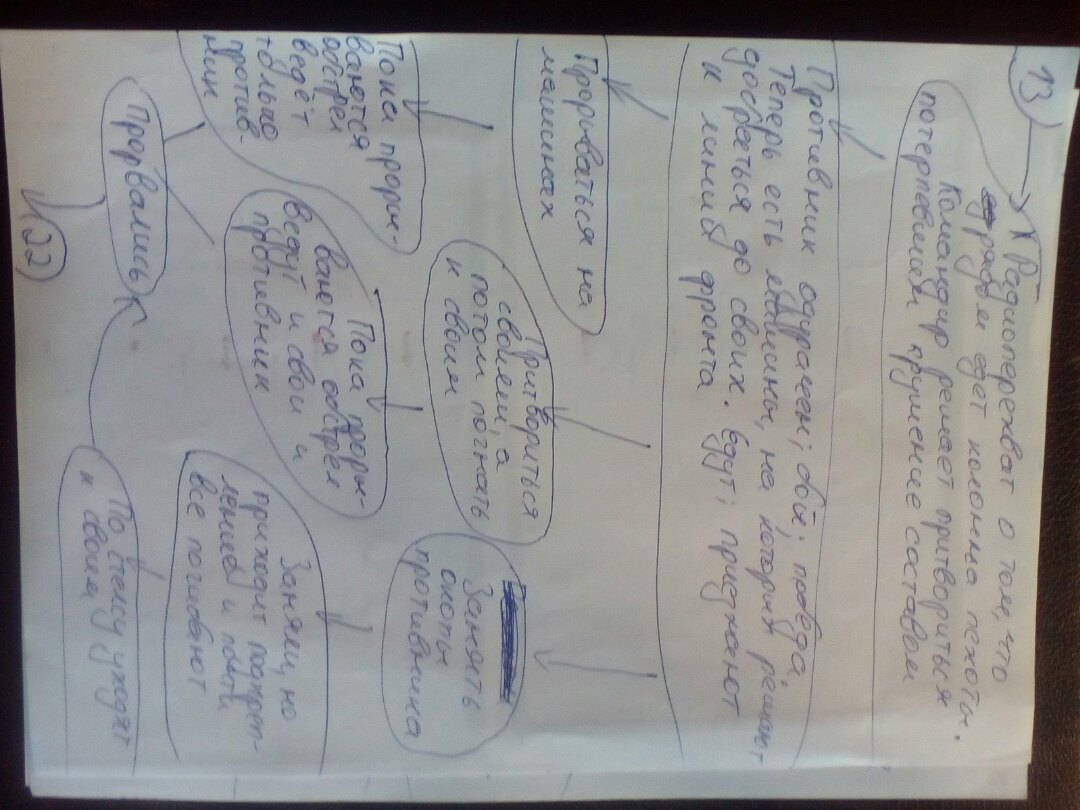 13
Радиоперехват о том, что
рядом едет колонна пехоты.
Командир решает притвориться
потерпевшим крушение составом
Противник одурачен; бой; победа;
Теперь есть машины, на которых решают
добраться до своих. Едут; приезжают
к линии фронта
Прорываться на
машинах
Притвориться
своими, а
потом погнать
к своим
Занять
окопы
противника
Пока проры-
ваются
обстрел
ведёт
только
против-
ник
Пока проры-
ваются обстрел
ведут и свои и
противник
Заняли, но
приходит подкреп-
ление и почти
все погибают
Прорвались
По лесу уходят
к своим
22